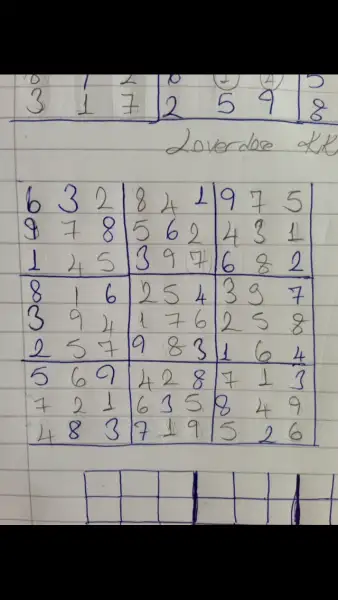 3 1 7 2 5 9 8
6 3 2 8 4 1 9 7 5
9 7 8 5 6 2 4 3 1
1 4 5 3 9 7 6 8 2
8 1 6 2 5 4 3 9 7
3 9 4 1 7 6 2 5 8
2 5 7 9 8 3 1 6 4
5 6 9 4 2 8 7 1 3
7 2 1 6 3 5 8 4 9
4 8 3 7 1 9 5 2 6